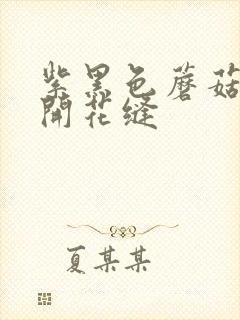 紫黑色蘑菇
開花缝
夏某某